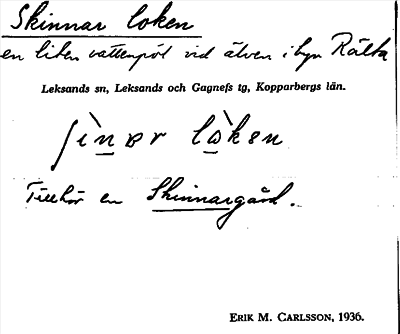 Skinnar loken
en liten vattenpöl vid älven i byn Rälta
Leksands sn, Leksands och Gagnefs tg, Kopparbergs län.
ʃìnɐr lòkɛn
Tillhör en Skinnargård.
ERIK M. CARLSSON, 1936.